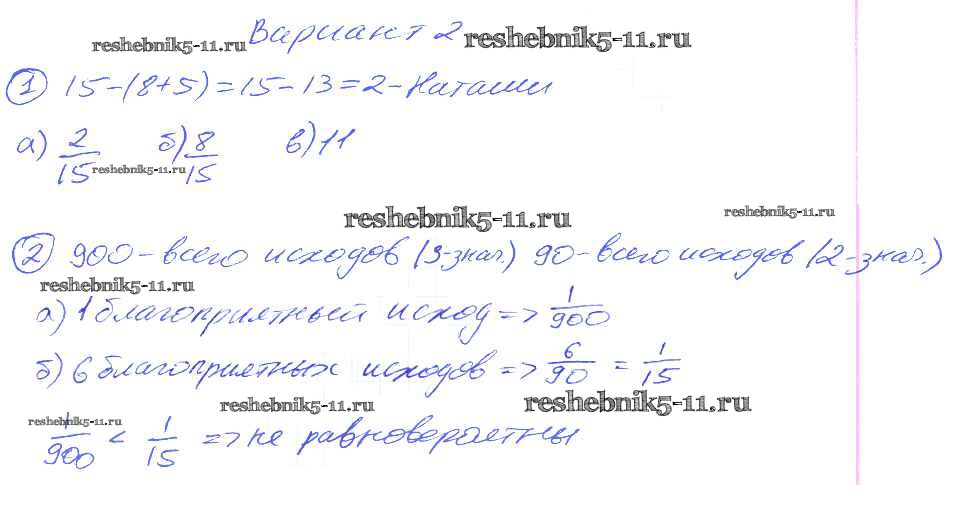 Вариант 2
reshebnik5-11.ru reshebnik5-11.ru
① 15-(8+5)=15-13=2-Наташи
а) 2/15 б) 8/15 в) 11
reshebnik5-11.ru
reshebnik5-11.ru reshebnik5-11.ru
② 900-всего исходов (3-знач.) 90-всего исходов (2-знач.)
reshebnik5-11.ru
а) 1 благоприятный исход => 1/900
б) 6 благоприятных исходов => 6/90 = 1/15
reshebnik5-11.ru reshebnik5-11.ru
reshebnik5-11.ru
1/900 < 1/15 => не равновероятны